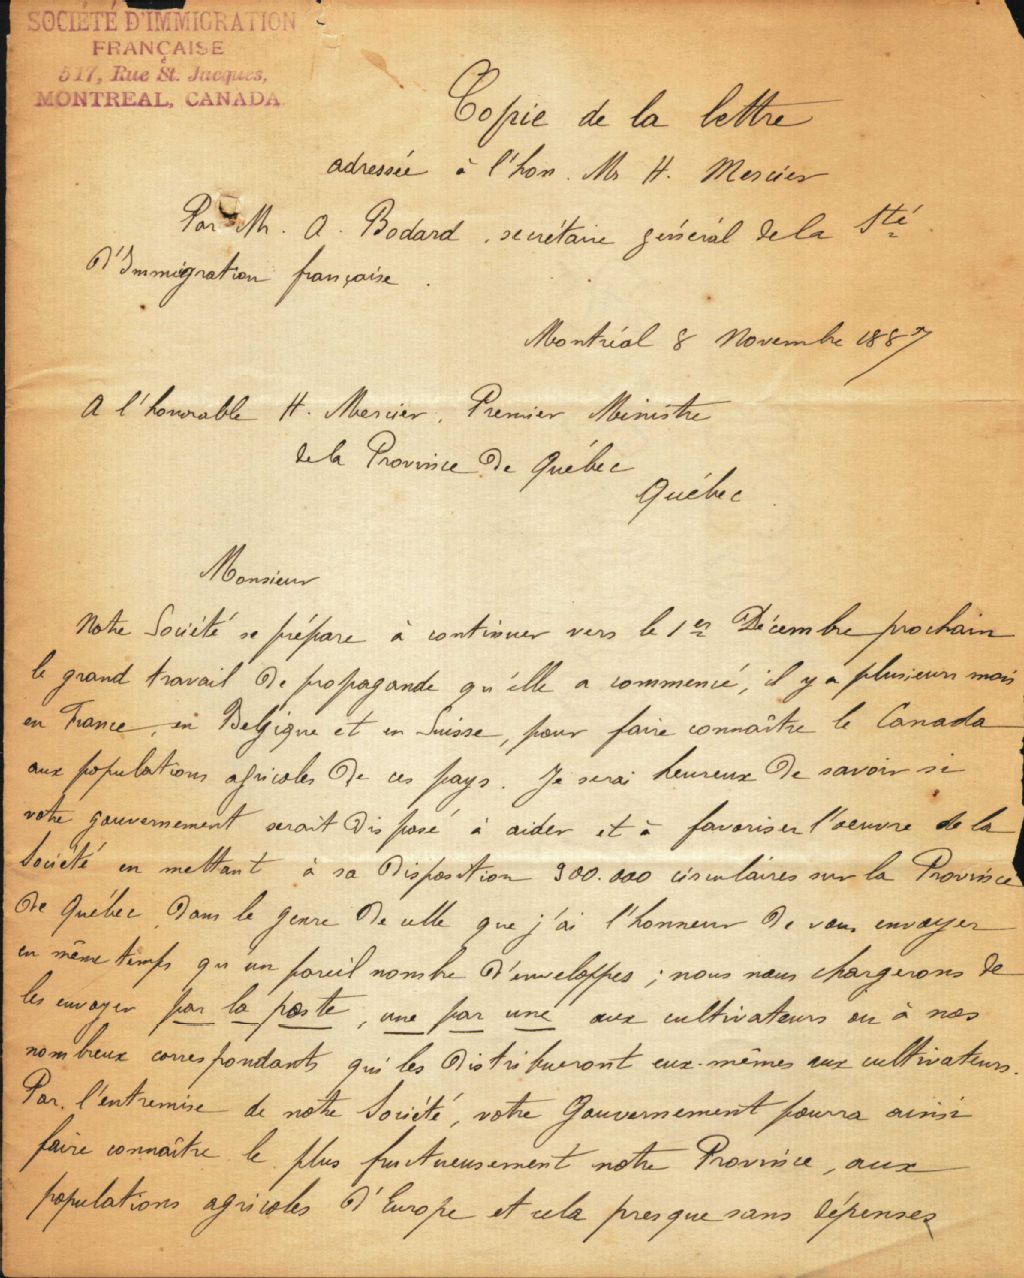 SOCIÉTÉ D'IMMIGRATION
FRANÇAISE
517, Rue St. Jacques,
MONTREAL, CANADA
Copie de la lettre
adressée à l'hon. Mr H. Mercier
Par Mr. A. Bodard, secrétaire général de la Sté
d'Immigration française.
Montréal 8 Novembre 1887
A l'honorable H. Mercier, Premier Ministre
de la Province de Québec
Québec.
Monsieur
Notre Société se prépare à continuer vers le 1er Décembre prochain
le grand travail de propagande qu'elle a commencé, il y a plusieurs mois
en France, en Belgique et en Suisse, pour faire connaître le Canada
aux populations agricoles de ces pays. Je serai heureux de savoir si
votre gouvernement serait disposé à aider et à favoriser l'oeuvre de la
Société en mettant à sa disposition 300.000 circulaires sur la Province
de Québec, dans le genre de celle que j'ai l'honneur de vous envoyer
en même temps qu'un pareil nombre d'enveloppes; nous nous chargerons de
les envoyer par la poste, une par une aux cultivateurs ou à nos
nombreux correspondants qui les distribueront eux-mêmes aux cultivateurs.
Par l'entremise de notre Société, votre Gouvernement pourra ainsi
faire connaître le plus fructueusement notre Province, aux
populations agricoles d'Europe et cela presque sans dépenses